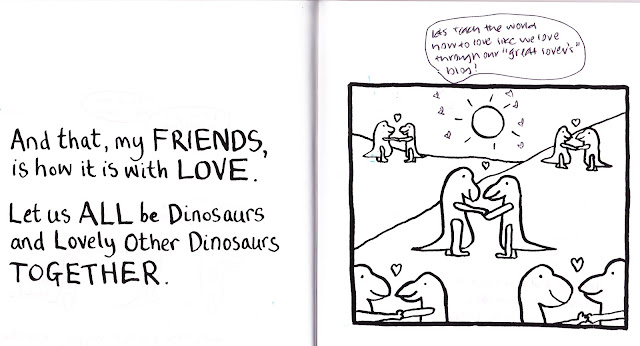 And that, my FRIENDS,
is how it is with LOVE.
Let us ALL be Dinosaurs
and Lovely Other Dinosaurs
TOGETHER.
Lets teach the world
how to love like we love
through our "great lover's"
blog!